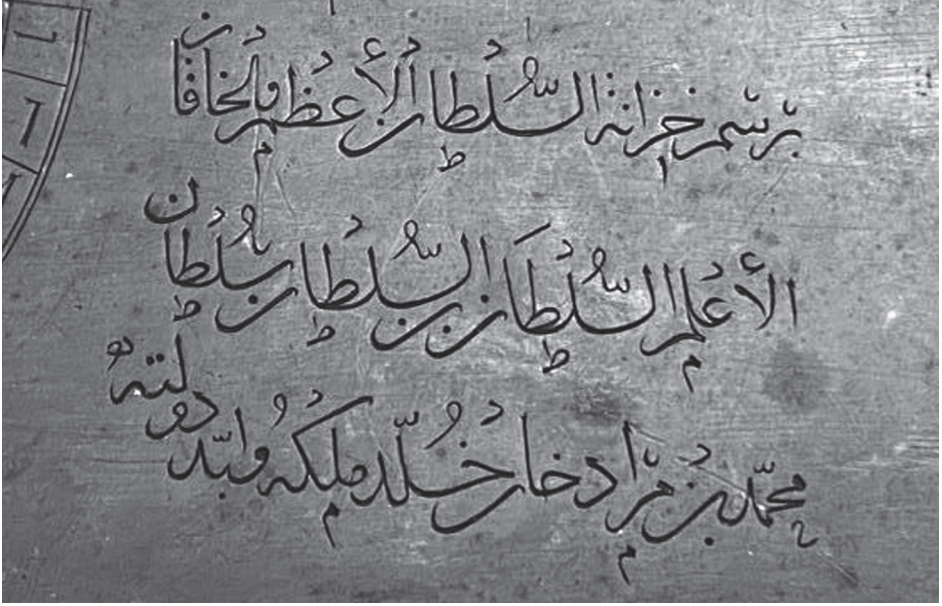 برسم خزانة السلطان الأعظم والخاقان
الأعلم السلطان بن السلطان سلطان
محمّد بن مراد خان خُلّد ملكه وابّد دولته